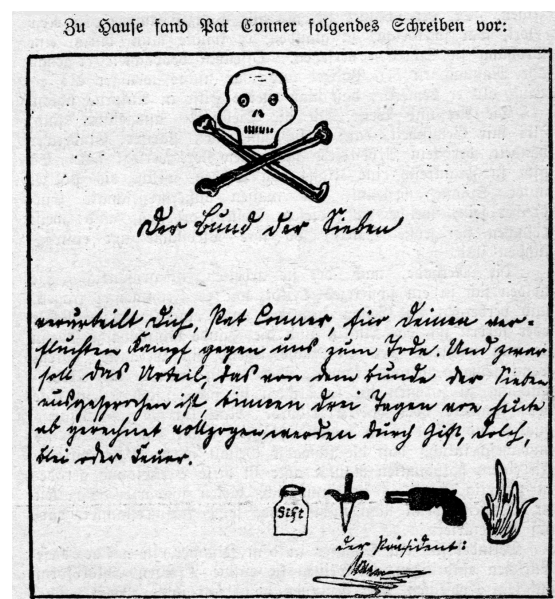 Zu Hause fand Pat Conner folgendes Schreiben vor:
Der Bund der Sieben
verurteilt Dich, Pat Conner, für Deinen ver-
fluchten Kampf gegen uns zum Tode. Und zwar
soll das Urteil, das von dem Bunde der Sieben
ausgesprochen ist, binnen drei Tagen von heute
ab gerechnet vollzogen werden durch Gift, Dolch,
Blei oder Feuer.
Gift
der Präsident: